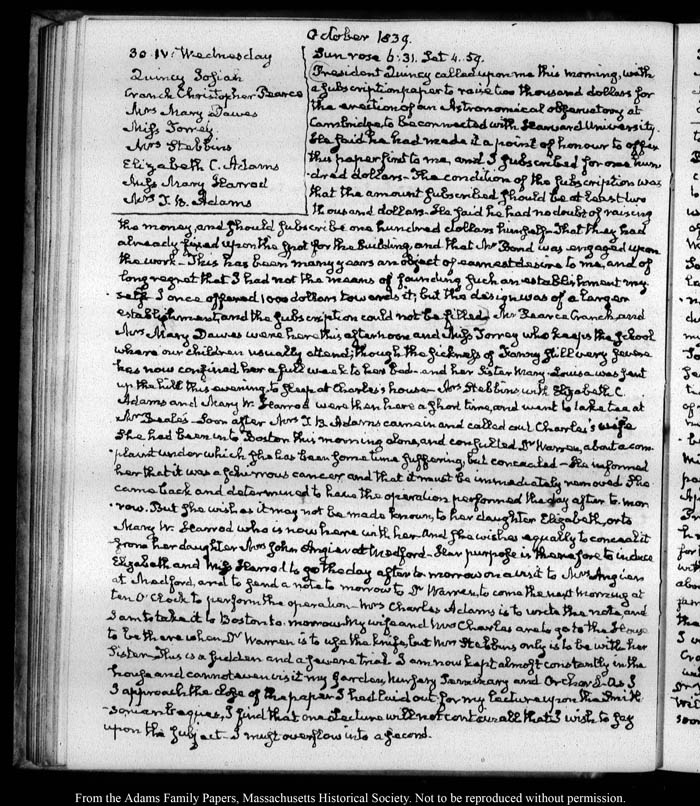 October 1839.
30. IV: Wednesday
Quincy Josiah
Cranch Christopher Pearce
Mrs Mary Dawes
Miss Torrey
Mrs Stebbins
Elizabeth C. Adams
Miss Mary Harrod
Mrs T. B. Adams
Sun rose 6:31. Set 4.59.
President Quincy called upon me this morning, with
a subscription paper to raise two thousand dollars for
the erection of an Astronomical observatory at
Cambridge, to be connected with Harvard University.
He said he had made it a point of honour to offer
this paper first to me, and I subscribed for one hun
dred dollars. The condition of the subscription was
that the amount subscribed should be at least two
thousand dollars. He said he had no doubt of raising
the money, and should subscribe one hundred dollars himself. That they had
already fixed upon the spot for the building, and that Mr Bond was engaged upon
the work. This has been many years an object of earnest desire to me, and of
long regret that I had not the means of founding such an establishment my
self. I once offered 1000 dollars towards it; but the design was of a larger
establishment, and the subscription could not be filled. Mr Pearce Cranch, and
Mrs Mary Dawes were here this afternoon and Miss Torrey who keeps the School
where our children usually attend; though the sickness of Fanny still very severe
has now confined her a full week to her bed. and her Sister Mary-Louisa was sent
up the hill this evening to sleep at Charles's house. Mrs Stebbins with Elizabeth C.
Adams and Mary W. Harrod were then here a short time, and went to take tea at
Mr Beale's. Soon after Mrs T. B. Adams came in and called out Charles's wife
She had been into Boston this morning alone, and consulted Dr Warren, about a com
plaint under which she has been some time suffering, but concealed. He informed
her that it was a schirrous cancer and that it must be immediately removed. She
came back and determined to have the operation performed the day after to mor
row. But she wishes it may not be made known, to her daughter Elizabeth, or to
Mary W. Harrod who is now here with her. And she wishes equally to conceal it
from her daughter Mrs John Angier at Medford. Her purpose is therefore to induce
Elizabeth and Miss Harrod to go the day after to-morrow on a visit to Mrs Angier
at Medford, and to send a note to morrow to Dr Warren, to come the next morning at
ten O'Clock to perform the operation. Mrs Charles Adams is to write the note, and
I am to take it to Boston to-morrow. My wife and Mrs Charles are to go to the House
to be there when Dr Warren is to use the knife, but Mrs Stebbins only is to be with her
Sister. This is a sudden and a severe trial. I am now kept almost constantly in the
house and cannot even visit my Garden, Nursery Seminary and Orchard. As I
I approach the close of the paper I had laid out for my lecture upon the Smith
sonian bequest, I find that one Lecture will not contain all that I wish to say
upon the subject. I must overflow into a second.
From the Adams Family Papers, Massachusetts Historical Society. Not to be reproduced without permission.